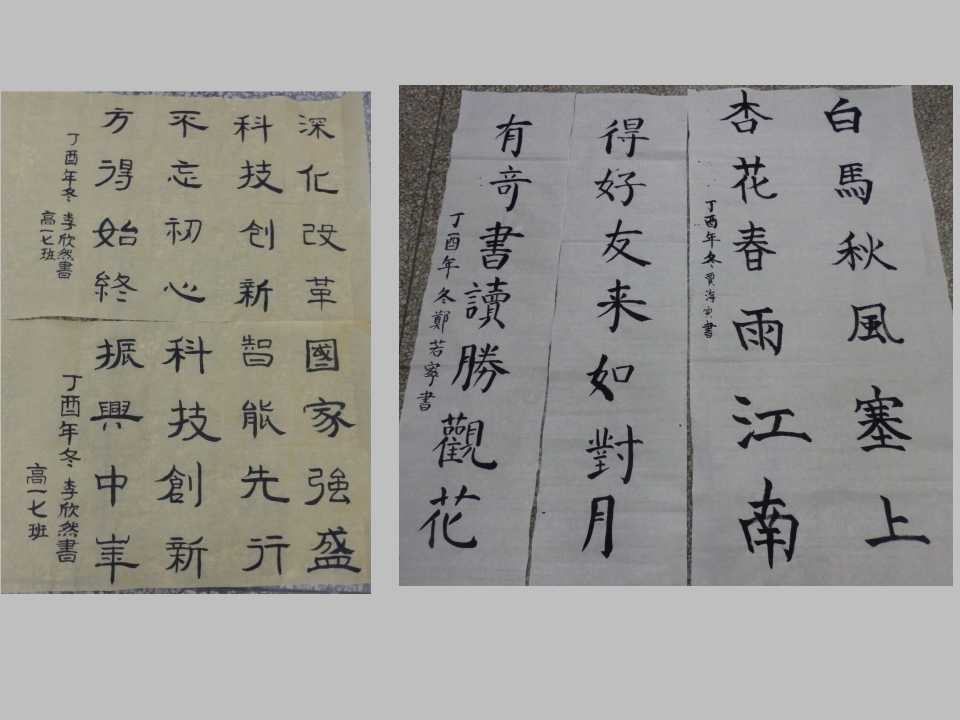 深化改革
科技创新
不忘初心
方得始終
丁酉年冬 李欣然書
高一七班
國家強盛
智能先行
科技創新
振興中華
丁酉年冬 李欣然書
高一七班
白馬秋風塞上
杏花春雨江南
丁酉年冬 書
得好友来如對月
有奇書讀勝觀花
丁酉年冬鄭若寧書